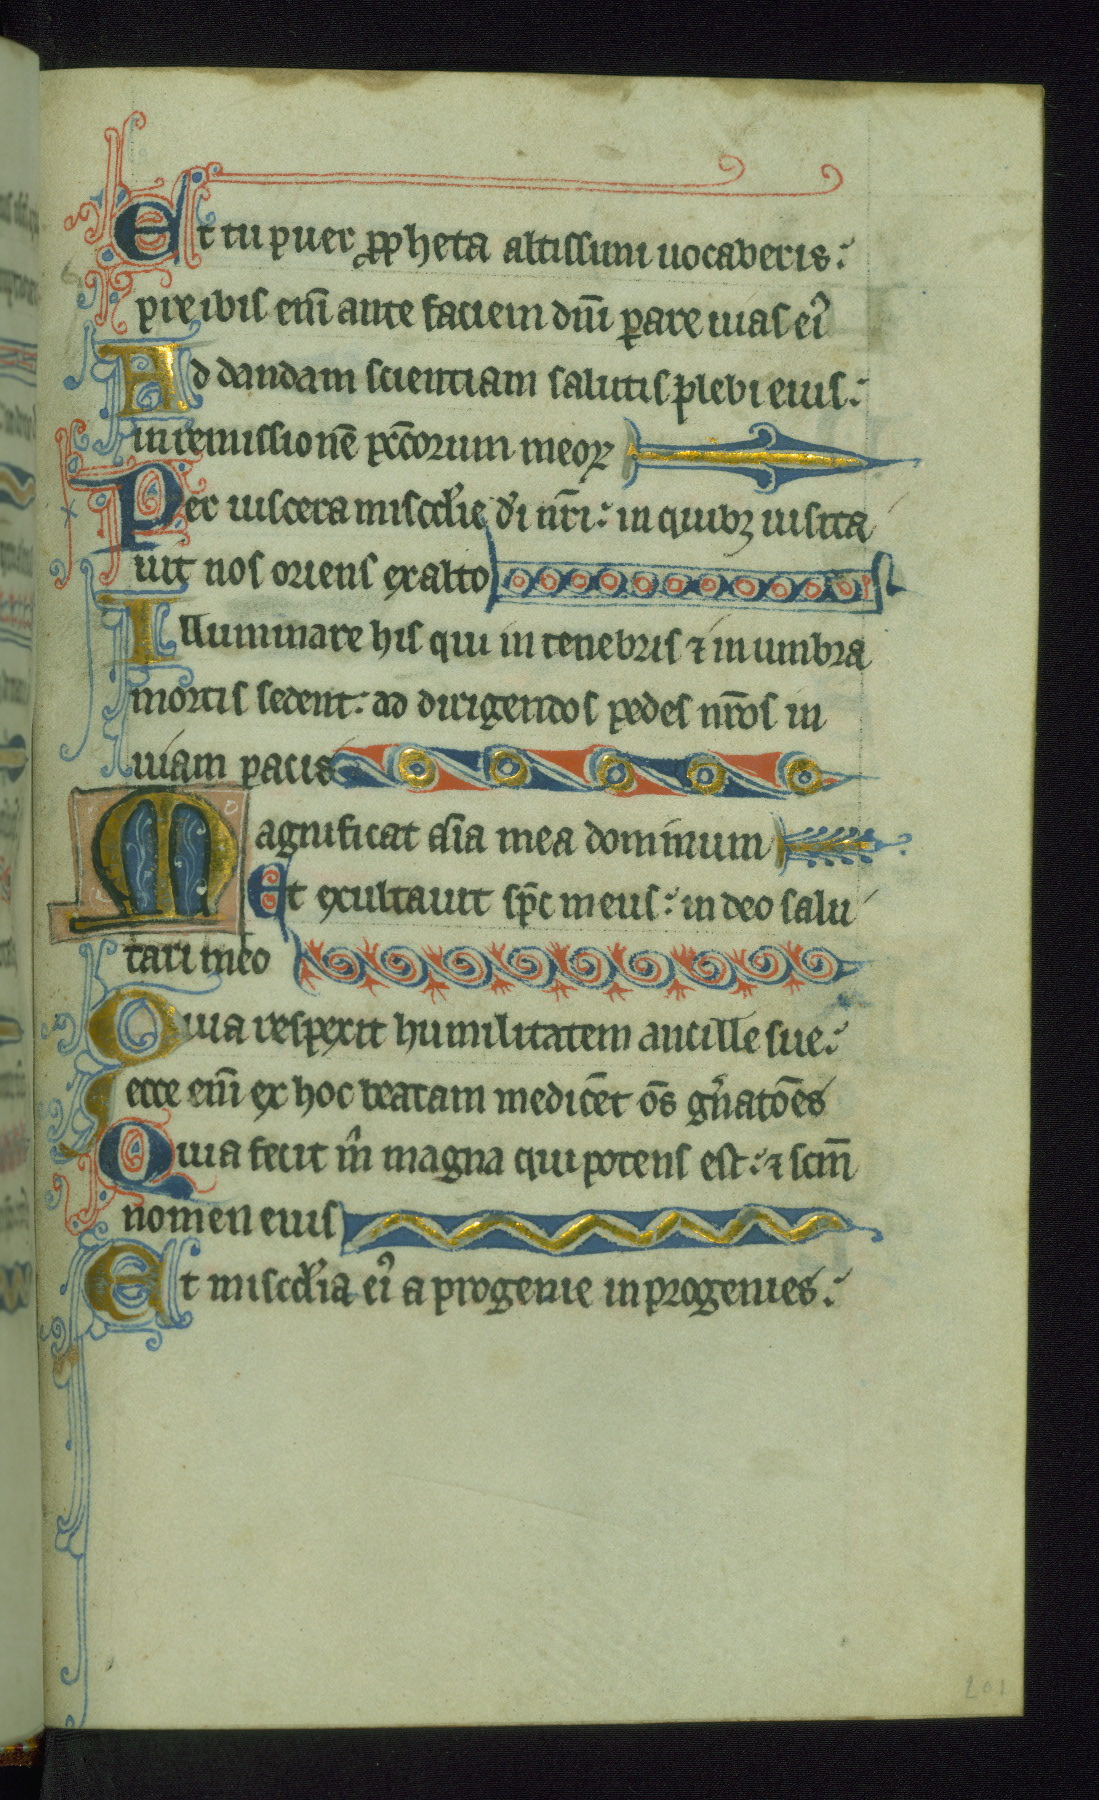 Et tu puer ꝓpheta altissimi uocaberis:
preibis eni᷑ ante faciem dn̄i ꝑare uias ei᾽
Ad dandam scientiam salutis plebi eius:
in remissionē pcc̄orum meoꝝ
Per uiscera miscd̓ie d̓i nr̄i: in quibꝫ uisita
uit nos oriens exalto
Illuminare his qui in tenebris ⁊ in umbra
mortis sedent: ad dirigendos pedes nr̄os in
uiam pacis
Magnificat aīa mea dominum
Et exultauit sp̄c meus: in deo salu
tari meo
Quia respexit humilitatem ancille sue:
ecce eni᷑ ex hoc beatam me dicēt ōs gn̄atōes
Quia fecit m̄ magna qui potens est: ⁊ scm̄
nomen euis
Et miscd̓ia ei᾽ a progenie in progenies:
201